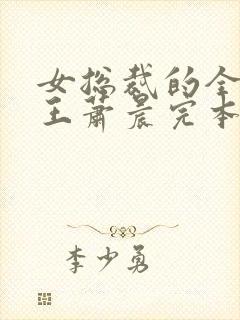 女总裁的全
王萧晨完本
李少勇